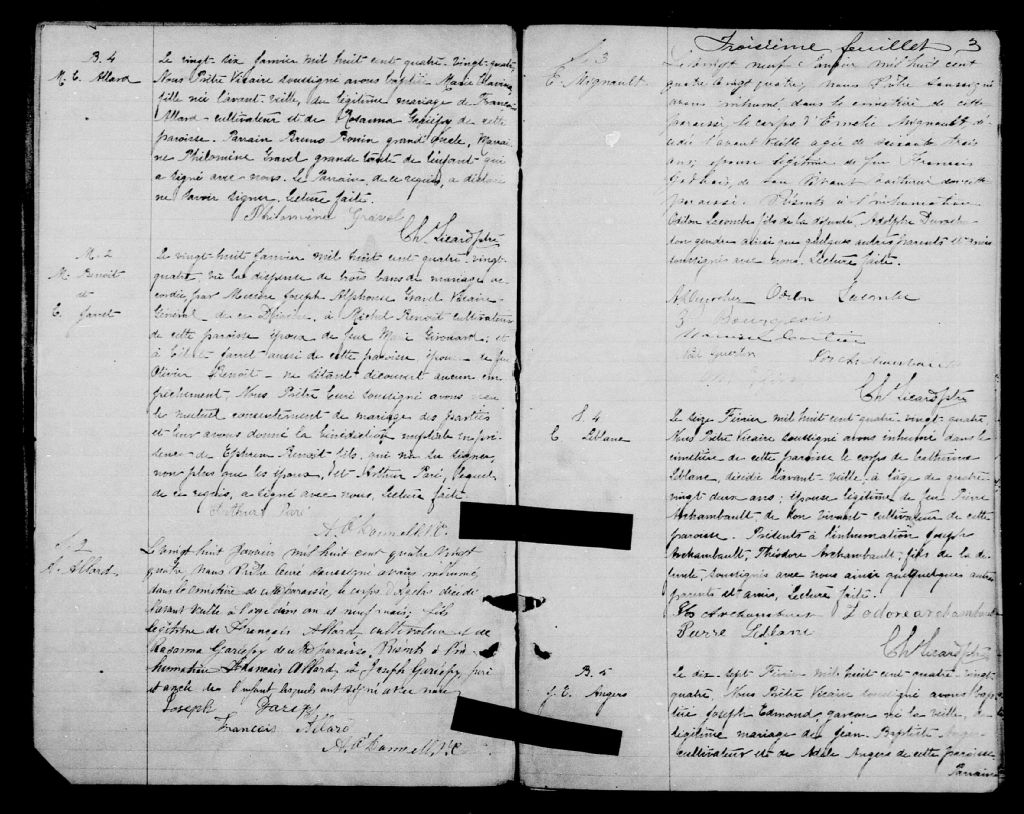 B. 4
M. E. Allard
Le vingt-six janvier mil huit cent quatre-vingt-quatre
Nous Prêtre Vicaire soussigné avons baptisé Marie
fille née l'avant-veille, du légitime mariage de François
Allard - cultivateur et de Rosanna Gariépy de cette
paroisse. Parrain Bruno grand oncle, Marrai-
ne Philomène Gravel grande tante de l'enfant qui
a signé avec nous. Le Parrain, de ce requis, a déclaré
ne savoir signer. Lecture faite.
Philomène Gravel
Chs Sicard Ptre
M. 2
M. Benoit
et
C. Jarret
Le vingt-huit janvier mil huit cent quatre-vingt-
quatre vu la dispense de trois bans de mariage ac-
cordée par Messire Joseph Alphonse Gravel Vicaire-
Général de ce Diocèse, à Michel Benoit cultivateur
de cette paroisse époux de feue Marie et
à Jarret aussi de cette paroisse épouse de feu
Olivier Benoit - ne s'étant découvert aucun em-
pêchement - Nous Prêtre Curé soussigné avons reçu
le mutuel consentement de mariage des parties
et leur avons donné la bénédiction nuptiale en pré-
sence de Ephrem Benoit fils, qui n'a su signer,
non plus que les époux, et Arthur Paré, lequel
de ce requis, a signé avec nous, Lecture faite
Arthur Paré
A. O'Donnell Ptre
S. 2
A. Allard
Le vingt huit Janvier mil huit cent quatre vingt
quatre Nous Prêtre Curé soussigné avons inhumé
dans le cimetière de cette paroisse, le corps d' décédé
l'avant veille à l'age d'un an et neuf mois; fils
légitime de François Allard, cultivateur et de
Rosanna Gariépy de cette paroisse. Présents à l'in-
humation François Allard, & Joseph Gariépy, père
et oncle de l'enfant lesquels ont signé avec nous
Joseph Gariépy
Francois Allard
A. O'Donnell Ptre
Troisième feuillet 3
S. 3
E. Mignault
Le vingt neuf Janvier mil huit cent
quatre vingt quatre, Nous Prêtre soussigné
avons inhumé, dans le cimetière de cette
paroisse, le corps d'Emelie Mignault dé-
cédée l'avant veille agée de soixante trois
ans; épouse légitime de feu Francois
de son vivant de cette
paroisse. Présents à l'inhumation
Odilon Lacombe fils de la défunte, Adolphe
son gendre ainsi que quelques autres parents et amis
soussignés avec nous. Lecture faite.
Odilon Lacombe
Bourgeois
Chs Sicard Ptre
S. 4
C. Leblanc
Le seize Février mil huit cent quatre-vingt-quatre
Nous Prêtre Vicaire soussigné avons inhumé dans le
cimetière de cette paroisse le corps de Catherine
Leblanc, décédée l'avant-veille à l'âge de quatre-
vingt deux ans; épouse légitime de feu Pierre
Archambault - de son vivant cultivateur de cette
paroisse. Présents à l'inhumation Joseph
Archambault, Théodore Archambault - fils de la dé-
funte, soussignés avec nous ainsi que quelques autres
parents et amis, Lecture faite.
Archambault
Pierre Leblanc
Chs Sicard Ptre
B. 5
J. E. Angers
Le dix-sept Février mil huit cent quatre-vingt-
quatre, Nous Prêtre Vicaire soussigné avons bap-
tisé Joseph Edmond, garçon né la veille, du
légitime mariage de Jean Baptiste Angers
cultivateur et de Adèle Angers de cette paroisse
Parrain